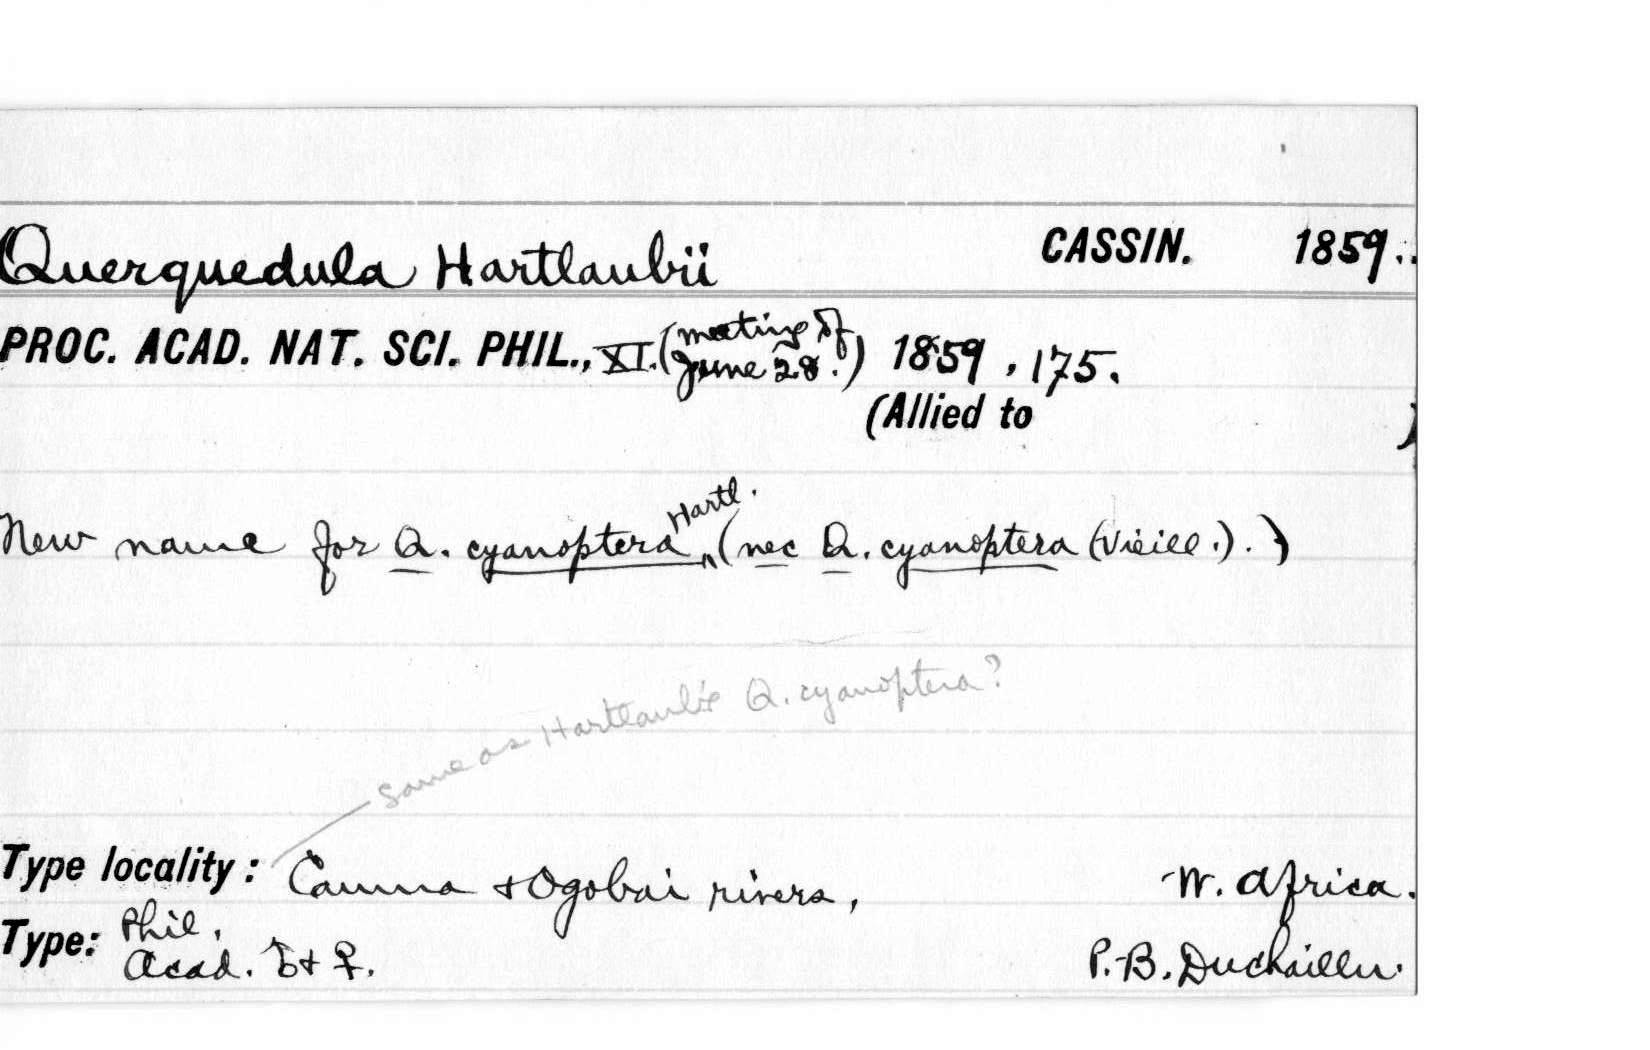 Querquedula Hartlaubii CASSIN. 1859..
PROC. ACAD. NAT. SCI. PHIL., XI. (meeting of June 28.) 1859, 175.
(Allied to )
New name for Q. cyanoptera Hartl. (nec Q. cyanoptera (Vieill.).)
same as Hartlaub's Q. cyanoptera?
Type locality: Camma & Ogobai rivers, W. Africa.
Type: Phil. Acad. ♂ & ♀. P. B. Duchaillu.